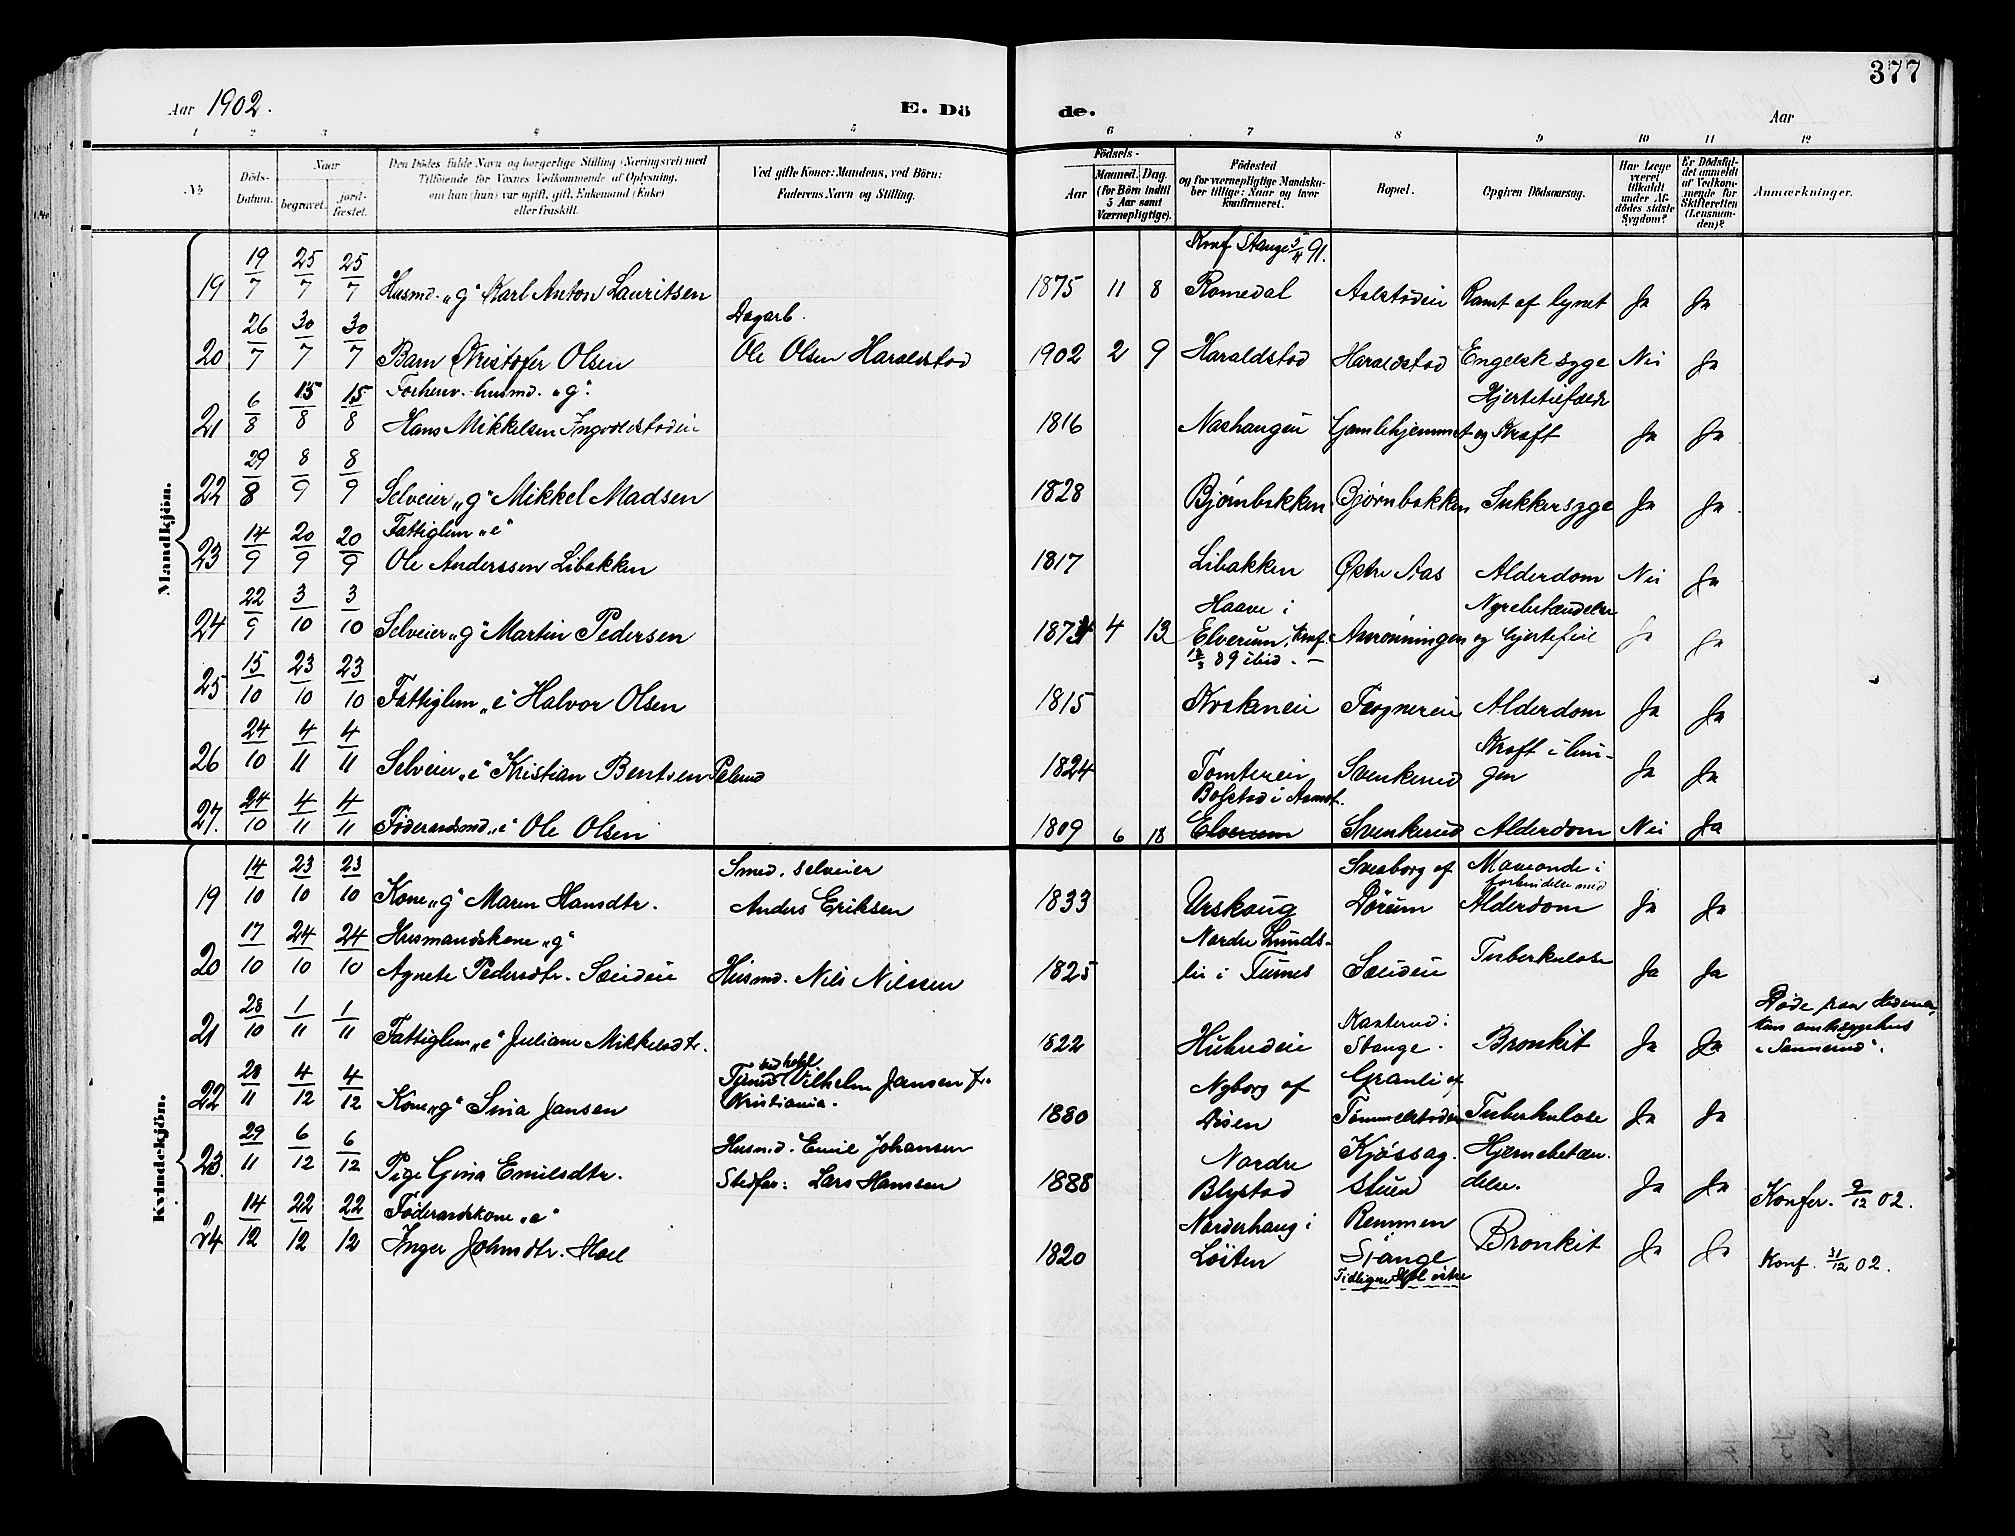 377
Aar 1902. E. Dö de. Aar
1 2 3 4 5 6 7 8 9 10 11 12
No
Döds-Datum.
Naar
begravet.
jord-fæstet.
Den Dödes fulde Navn og borgerlige Stilling (Næringsvei) med
Tilföiende for Voxnes Vedkommende af Oplysning,
om han (hun) var ugift, gift, Enkemand (Enke)
eller fraskilt.
Ved gifte Koner: Mandens, ved Börn:
Faderens Navn og Stilling.
Födsels-
Aar
Maaned. Dag.
(for Börn indtil
5 Aar samt
Værnepligtige).
Födested
og for værnepligtige Mandska-
ber tillige: Naar og hvor
Konfirmeret.
Bopæl.
Opgiven Dödsaarsag.
Har Læge
været
tilkaldt
under Af-
dödes sidste
Sygdom?
Er Dödsfal-
det anmeldt
af Vedkom-
mende for
Skifteretten
(Lensman-
den)?
Anmærkninger.
Mandkjön.
Konf Stange 5/4 91.
19 19/7 25/7 25/7 Husmd. „g“ Karl Anton Lauritsen 1875 11 8 Romedal Aalstadeie Ramt af lynet Ja Ja
Dagarb.
20 26/7 30/7 30/7 Barn Kristofer Olsen Ole Olsen Haraldstad 1902 2 9 Haraldstad Haraldstad Engelsk syge Nei Ja
Forhenv. husmd. „g“. Hjertetilfælde
21 6/8 15/8 15/8 Hans Mikkelsen Ingvoldstadeie 1816 Nashaugen Gamlehjemmet og Kræft Ja Ja
22 29/8 8/9 8/9 Selveier „g“ Mikkel Madsen 1828 Bjørnbakken Bjørnbakken Sukkersyge Ja Ja
Fattiglem „e“
23 14/9 20/9 20/9 Ole Anderssen Libakken 1817 Libakken Østre Aas Alderdom Nei Ja
Haave i Nyrebetændelse
24 22/9 3/10 3/10 Selveier „g“ Martin Pedersen 1874 4 13 Elverum, Konf. og hjertefeil Ja Ja
89 ibid. –
25 15/10 23/10 23/10 Fattiglem „e“ Halvor Olsen 1815 Alderdom Ja Ja
Kræft i lun-
26 24/10 4/11 4/11 Selveier „e“ Kristian Bentsen 1824 Tomtereie Svenkerud gen Ja Ja
Bolstad i Aamot.
27. 24/10 4/11 4/11 Föderaadsmd. „e“ Ole Olsen 1809 6 18 Elverum Svenkerud Alderdom Nei Ja
Kvindekjön.
Smed. selveier Sveaborg af Maveonde i
forbindelse med
19 14/10 23/10 23/10 Kone „g“ Maren Hansdtr. Anders Eriksen 1833 Urskoug Dørum Alderdom Ja Ja
Husmandskone „g“ Nordre Lunds-
20 17/10 24/10 24/10 Agnete Pedersdtr. Sæideie Husmd. Nils Nilssen 1825 lie i Furnes Sæideie Tuberkulose Ja Ja
Døde paa Hedemar-
Kasterud i kens amtssygehus
21 28/10 1/11 1/11 Fattiglem „e“ Juliane Mikkelsdtr. 1822 Stange. Bronkit Ja Ja „Sannerud“.
Nyborg af Granlie af
22 28/11 4/12 4/12 Kone „g“ Sina Jansen Vilhelm Jansen fr. Kristiania. 1880 Disen Tommelstadeie Tuberkulose Ja Ja
Husmd. Emil Johansen Nordre Hjernebetæn-
23. 29/11 6/12 6/12 Pige Gina Emilsdtr. Stedfar: Lars Hansen 1888 Blystad stuen delse. Ja Ja Konfer. 9/12 02.
Föderaadskone „e“ Norderhaug i Remmen
24 14/12 22/12 22/12 Inger Johnsdtr. Hoel 1820 Løiten Stange Bronkit Ja Ja Konf. 31/12 02.